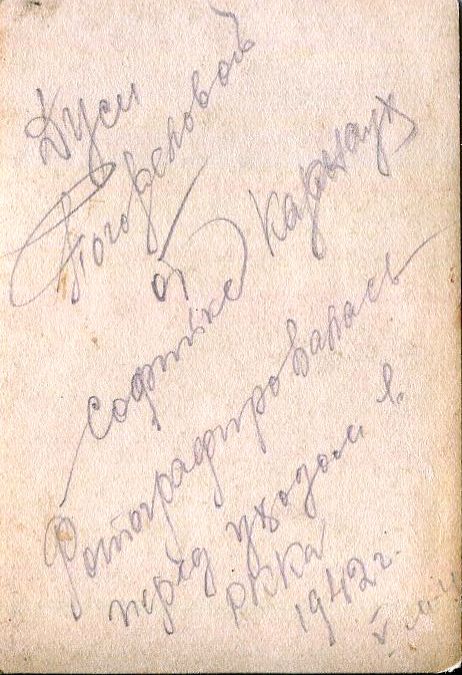 Дуси
Погореловой
от
Софийке Карнаух
Фотографировалась
перед уходом в
РККА
1942 г.
V м-ц